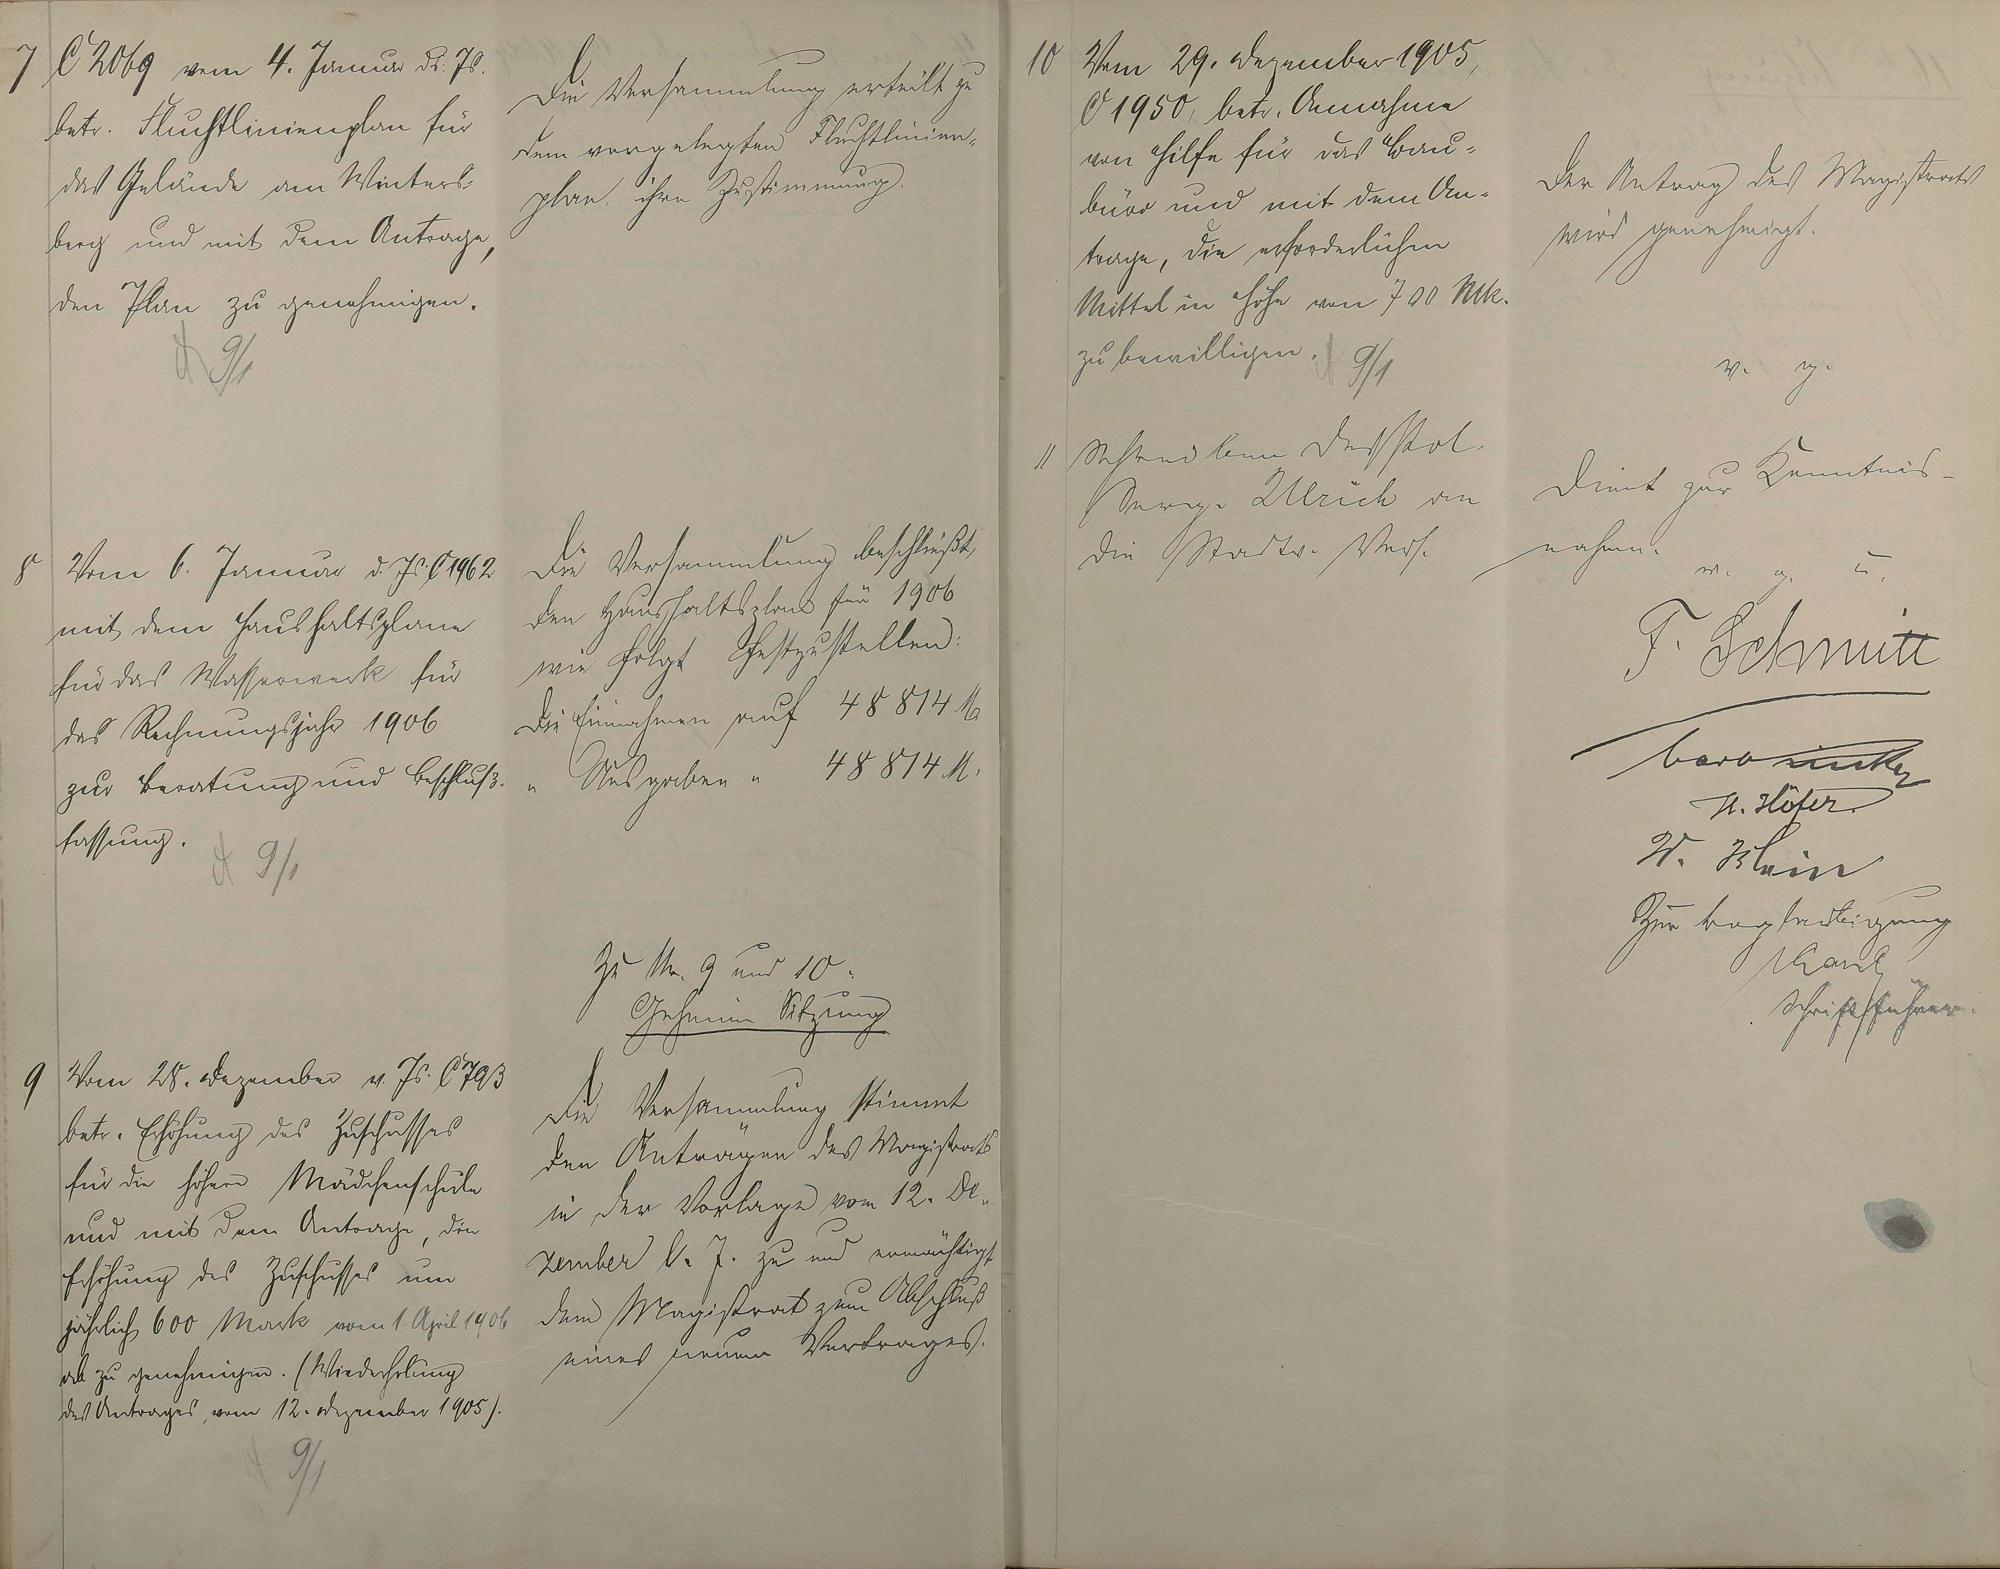 7 C 2069 vom 4. Januar ds. Js.
betr. Fluchtlinienplan für
das Gelände am Winters-
berg und mit dem Antrage,
den Plan zu genehmigen.
9/1
Die Versammlung erteilt zu
dem vorgelegten Fluchtlinien-
plan ihre Zustimmung.
8 Vom 6. Januar d. Js. C 1962
mit dem Haushaltsplane
für das Wasserwerk für
das Rechnungsjahr 1906
zur Beratung und Beschluß-
fassung.
9/1
Die Versammlung beschließt,
den Haushaltsplan für 1906
wie folgt festzustellen:
Die Einnahmen auf 48 814 M
" Ausgaben " 48 814 M.
Zu Nr. 9 und 10:
Geheime Sitzung
9 Vom 28. Dezember v. Js. C 793
betr. Erhöhung des Zuschusses
für die höhere Mädchenschule
und mit dem Antrage, die
Erhöhung des Zuschusses um
jährlich 600 Mark vom 1. April 1906
ab zu genehmigen. (Wiederholung
des Antrages vom 12. Dezember 1905).
9/1
Die Versammlung stimmt
den Anträgen des Magistrats
in der Vorlage vom 12. De-
zember v. J. zu und ermächtigt
den Magistrat zum Abschluß
eines neuen Vertrages.
10 Vom 29. Dezember 1905,
C 1950, betr. Annahme
von Hilfe für das Bau-
büro und mit dem An-
trage, die erforderlichen
Mittel in Höhe von 700 Mk.
zu bewilligen.
9/1
Der Antrag des Magistrats
wird genehmigt.
v. g.
11 Schreiben des Pol.
Serg. Ulrich an
die Stadtv. Vers.
Dient zur Kenntnis-
nahme.
v. g. u.
F. Schmitt
H. Höfer
W. Klein
Zur Beglaubigung
Schriftführer.